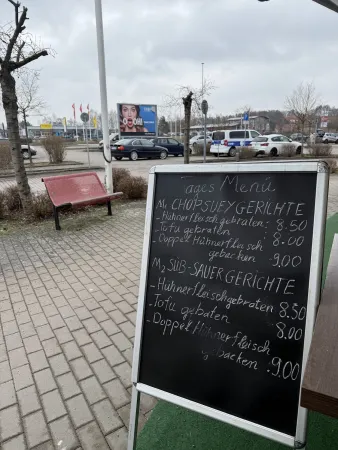 Tages Menü
M1 CHOPSUEYGERICHTE
- Hühnerfleisch gebraten: 8.50
- Tofu gebraten 8.00
- Doppel Hühnerfleisch
gebacken 9.00
M2 SÜß-SAUERGERICHTE
- Hühnerfleischgebraten 8.50
- Tofu gebaten 8.00
- Doppel Hühnerfleisch
gebacken .9.00